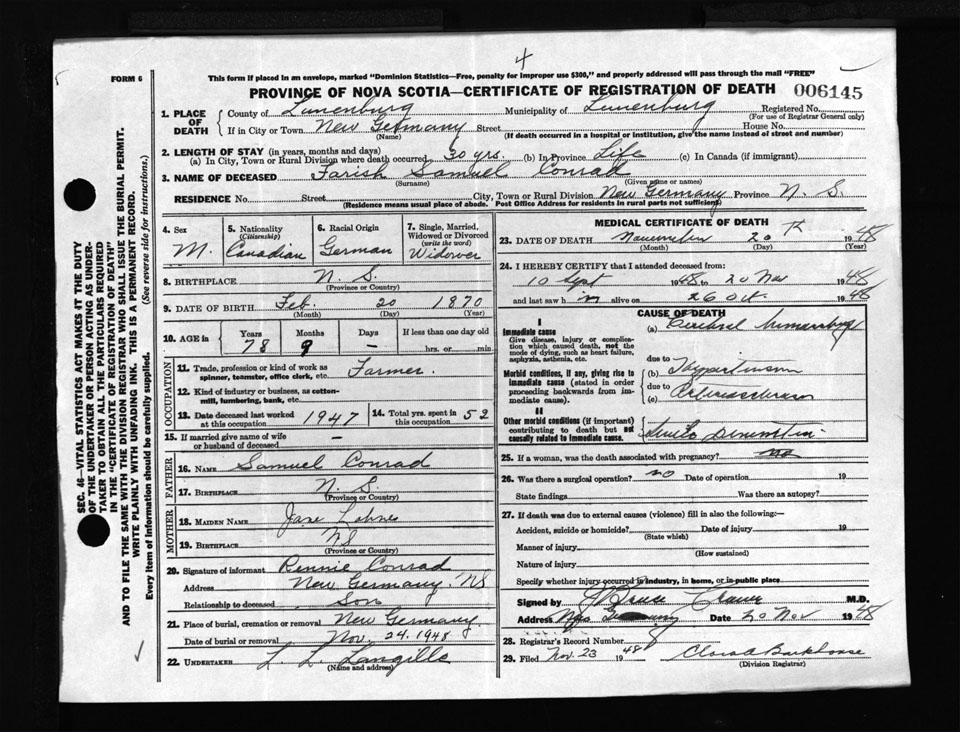 4
FORM 6
This form if placed in an envelope, marked "Dominion Statistics—Free, penalty for improper use $300," and properly addressed will pass through the mail "FREE"
PROVINCE OF NOVA SCOTIA—CERTIFICATE OF REGISTRATION OF DEATH 006145
1. PLACE OF DEATH
County of Lunenburg Municipality of Lunenburg Registered No.
(For use of Registrar General only)
If in City or Town New Germany Street House No.
(Name) (If death occurred in a hospital or institution, give the name instead of street and number)
2. LENGTH OF STAY (in years, months and days)
(a) In City, Town or Rural Division where death occurred 30 yrs. (b) In Province Life (c) In Canada (if immigrant)
3. NAME OF DECEASED Farish Samuel Conrad
(Surname) (Given name or names)
RESIDENCE No. Street City, Town or Rural Division New Germany Province N. S.
(Residence means usual place of abode. Post Office Address for residents in rural parts not sufficient)
4. Sex
M.
5. Nationality
(Citizenship)
Canadian
6. Racial Origin
German
7. Single, Married, Widowed or Divorced
(write the word)
Widower
8. BIRTHPLACE N. S.
(Province or Country)
9. DATE OF BIRTH Feb. 20 1870
(Month) (Day) (Year)
10. AGE in
Years Months Days If less than one day old
78 9 – hrs. or min
OCCUPATION
11. Trade, profession or kind of work as spinner, teamster, office clerk, etc. Farmer.
12. Kind of industry or business, as cotton-mill, lumbering, bank, etc.
13. Date deceased last worked at this occupation 1947
14. Total yrs. spent in 52
15. If married give name of wife or husband of deceased –
FATHER
16. NAME Samuel Conrad
17. BIRTHPLACE N. S.
(Province or Country)
MOTHER
18. MAIDEN NAME Jane Lohnes
19. BIRTHPLACE NS
(Province or Country)
20. Signature of informant Rennie Conrad
Address New Germany. NS
Relationship to deceased Son
21. Place of burial, cremation or removal New Germany.
Date of burial or removal Nov. 24. 1948
22. UNDERTAKER L. L. Langille
(Name and address)
MEDICAL CERTIFICATE OF DEATH
23. DATE OF DEATH November 20 th 1948
(Month) (Day) (Year)
24. I HEREBY CERTIFY that I attended deceased from:
10 Sept 1948 to 20 Nov 1948
and last saw him alive on 26 Oct. 1948
CAUSE OF DEATH
I
Immediate cause
Give disease, injury or complication which caused death, not the mode of dying, such as heart failure, asphyxia, asthenia, etc.
(a) Cerebral hemorrhage
due to
Morbid conditions, if any, giving rise to immediate cause (stated in order proceeding backwards from immediate cause)
(b) Hypertension
due to
(c) Arteriosclerosis
II
Other morbid conditions (if important) contributing to death but not causally related to immediate cause.
Senile Dementia
25. If a woman, was the death associated with pregnancy? no
26. Was there a surgical operation? no Date of operation 19
State findings Was there an autopsy?
27. If death was due to external causes (violence) fill in also the following:—
Accident, suicide or homicide? Date of injury 19
(State which)
Manner of injury
(How sustained)
Nature of injury
Specify whether injury occurred in industry, in home, or in public place
Signed by Bruce M.D.
Address New Germany Date 20 Nov 1948
28. Registrar's Record Number 8
29. Filed Nov. 23 1948 Clara A Barkhouse
(Division Registrar)
SEC. 46—VITAL STATISTICS ACT MAKES IT THE DUTY
OF THE UNDERTAKER OR PERSON ACTING AS UNDER-
TAKER TO OBTAIN ALL THE PARTICULARS REQUIRED
IN THE "CERTIFICATE OF REGISTRATION OF DEATH"
AND TO FILE THE SAME WITH THE DIVISION REGISTRAR WHO SHALL ISSUE THE BURIAL PERMIT.
WRITE PLAINLY WITH UNFADING INK. THIS IS A PERMANENT RECORD.
Every item of information should be carefully supplied. (See reverse side for instructions.)